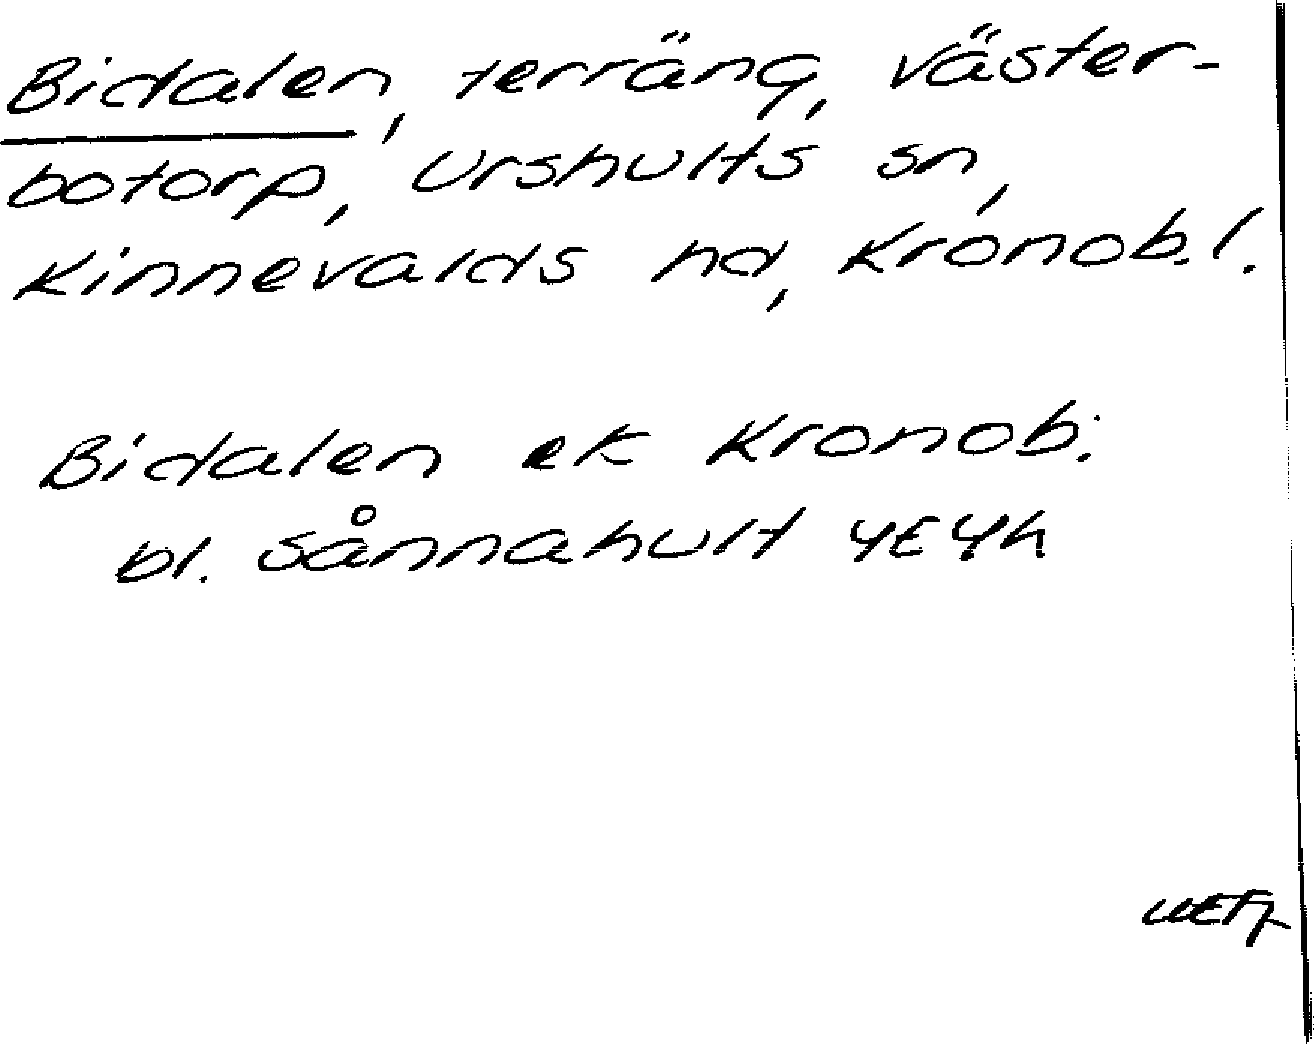 Bidalen, terräng, Väster-
botorp, Urshults sn,
Kinnevalds hd, Kronob.l.
Bidalen ek Kronob.
bl. Sånnahult 4E4h